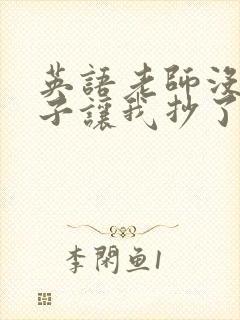 英語老師沒
子讓我抄了
李閑魚1